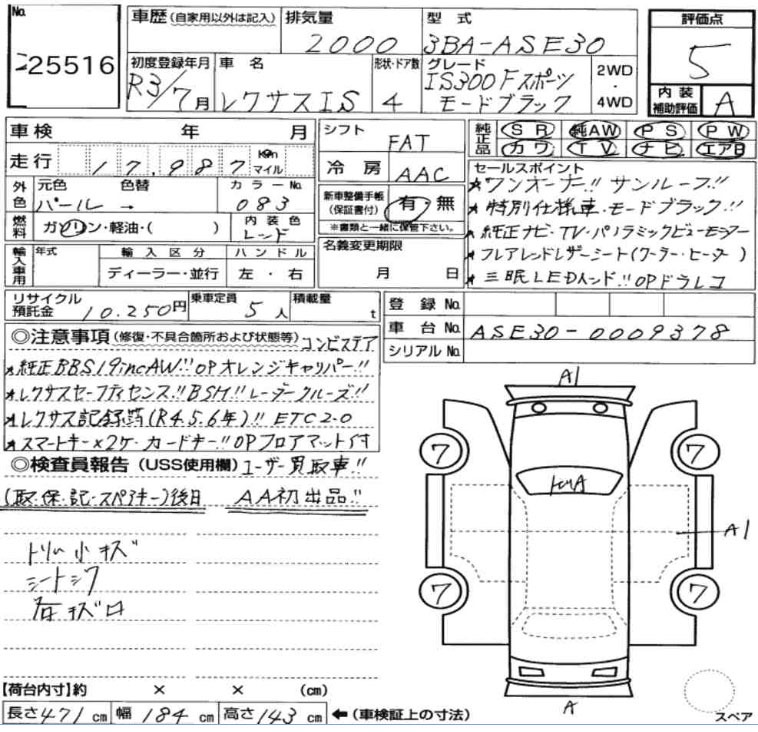 No. 25516
車歴 (自家用以外は記入)
排気量 2000
型式 3BA-ASE30
評価点 5
初度登録年月 R3/7月
車名 レクサスIS
形状・ドア数 4
グレード IS300 Fスポーツ
モードブラック
2WD・4WD
内装補助評価 A
車検 年 月
シフト FAT
純正品 SR 純AW PS PW
カワ TV ナビ エアB
走行 17,987 Km マイル
冷房 AAC
セールスポイント
★ワンオーナー!! サンルーフ!!
外色 元色 パール 色替 → カラーNo. 083
新車整備手帳(保証書付) 有・無
※書類と一緒に保管下さい。
★特別仕様車・モードブラック!!
燃料 ガソリン・軽油・( ) 内装色 レッド
★純正ナビ・TV・パノラミックビューモニター
名義変更期限 月 日
★フレアレッドレザーシート(クーラー・ヒーター)
輸入車用 年式 輸入区分 ディーラー・並行 ハンドル 左・右
★三眼LEDヘッド!! OPドラレコ
リサイクル預託金 10.250円 乗車定員 5人 積載量 t
登録No.
車台No. ASE30-0009378
シリアルNo.
◎注意事項 (修復・不具合箇所および状態等) コンビステア
★純正BBS19incAW!!! OPオレンジキャリパー!!
★レクサスセーフティセンス!! BSM!! レーダークルーズ!!
★レクサス記録簿(R4.5.6年)!! ETC2.0
★スマートキー×2ケ・カードキー!! OPフロアマット付
◎検査員報告 (USS使用欄) ユーザー買取車!!
(取・保・記・スペアキー)後日 AA初出品!!
トリム小キズ
シートシワ
A1
7 7
A1
7 7
A
スペア
【荷台内寸】約 × × (cm)
長さ 471 cm 幅 184 cm 高さ 143 cm ←(車検証上の寸法)